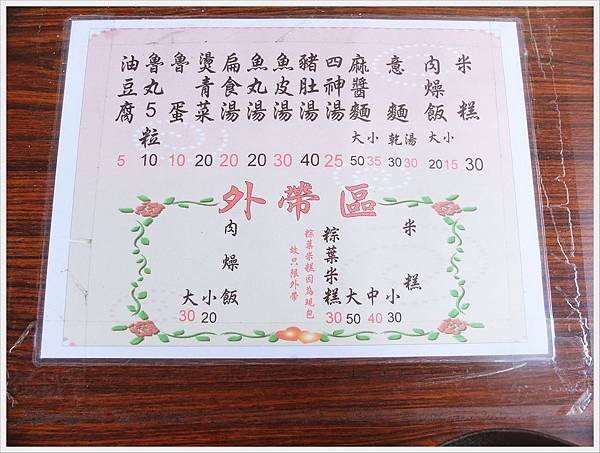 米糕 30
肉燥飯 大小 20 15
意麵 乾湯 30 30
麻醬麵 大小 50 35
四神湯 25
豬肚湯 40
魚皮湯 30
魚丸湯 20
扁食湯 20
燙青菜 20
魯蛋 10
魯丸5粒 10
油豆腐 5
外帶區
米糕 大中小 50 40 30
粽葉米糕 30
粽葉米糕因為現包
故只限外帶
肉燥飯 大小 30 20